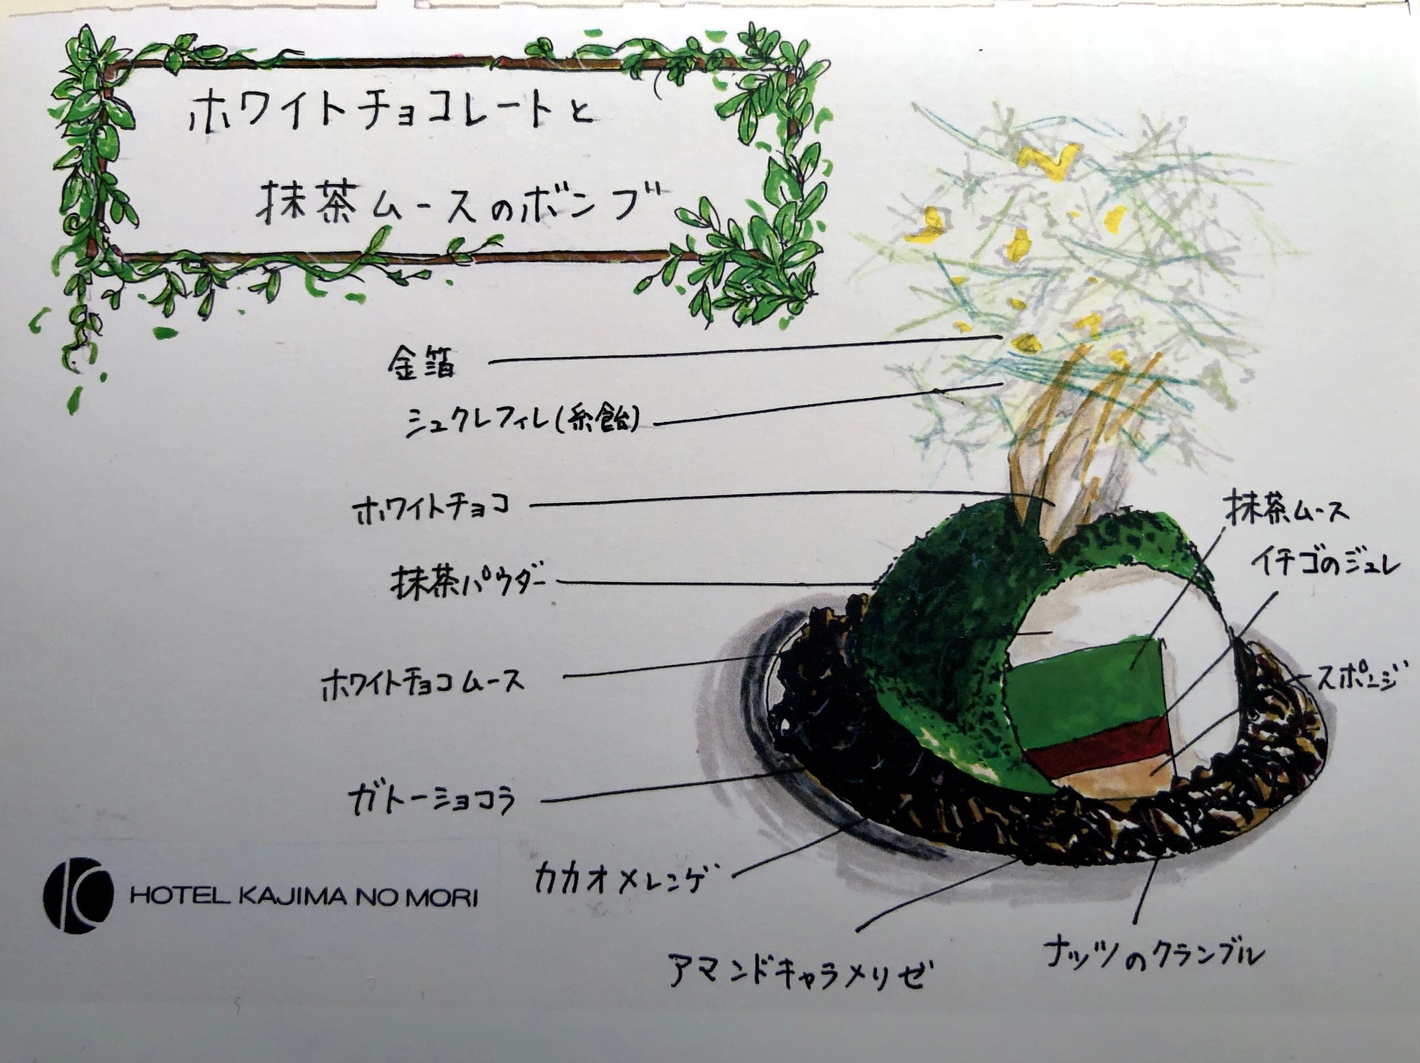 ホワイトチョコレートと
抹茶ムースのボンブ
金箔
シュクレフィレ(糸飴)
ホワイトチョコ
抹茶パウダー
ホワイトチョコムース
ガトーショコラ
カカオメレンゲ
アマンドキャラメリゼ
ナッツのクランブル
抹茶ムース
イチゴのジュレ
スポンジ
HOTEL KAJIMA NO MORI